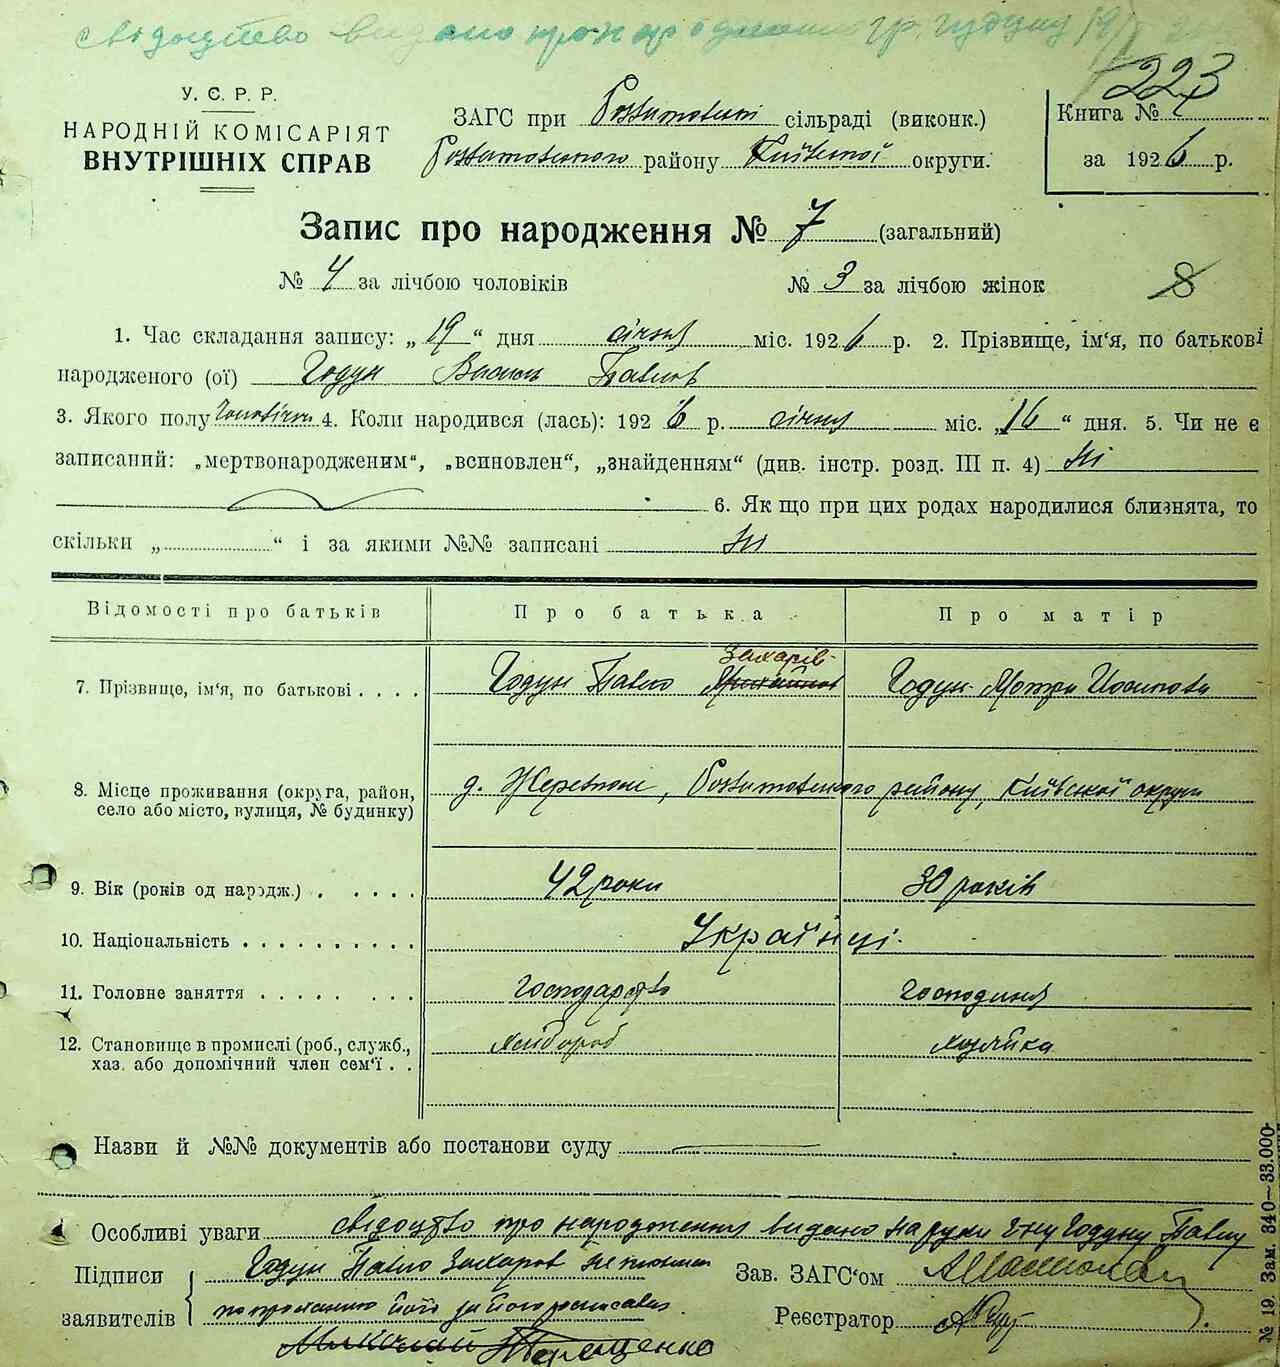 свідоцтво видано про народження гр. Гудуну
У. С. Р. Р.
НАРОДНІЙ КОМІСАРІЯТ
ВНУТРІШНІХ СПРАВ
ЗАГС при сільраді (виконк.)
району Київської округи.
223
Книга №
за 1926 р.
Запис про народження № 7 (загальний)
№ 4 за лічбою чоловіків № 3 за лічбою жінок 8
1. Час складання запису: „19“ дня січня міс. 1926 р. 2. Прізвище, ім'я, по батькові
народженого (ої) Годун Василь Павлов
3. Якого полу чоловічи 4. Коли народився (лась): 1926 р. січня міс. „16“ дня. 5. Чи не є
записаний: „мертвонародженим“, „всиновлен“, „знайденням“ (див. інстр. розд. III п. 4) Ні
6. Як що при цих родах народилися близнята, то
скільки „ “ і за якими №№ записані Ні
Відомості про батьків Про батька Про матір
Захарів
7. Прізвище, ім'я, по батькові . . . . Годун Павло Михайлов Годун Мотря Йосипова
8. Місце проживання (округа, район,
село або місто, вулиця, № будинку) д. району, Київської округи
9. Вік (років од народж.) . . . . . . 42 роки 30 років
10. Національність . . . . . . . . . . Українці.
11. Головне заняття . . . . . . . . Господарство Господиня
12. Становище в промислі (роб., служб.,
хаз. або допомічний член сем'ї . . Хлібороб хазяйка
Назви й №№ документів або постанови суду
Особливі уваги свідоцтво про народження видано на руки г-ну Годуну Павлу
Підписи
заявителів
Годун Павло Захаров неписьмен
по проханню його за його росписався
Терещенко
Зав. ЗАГС'ом
Реєстратор
№ 19. Зам. 340—33.000-